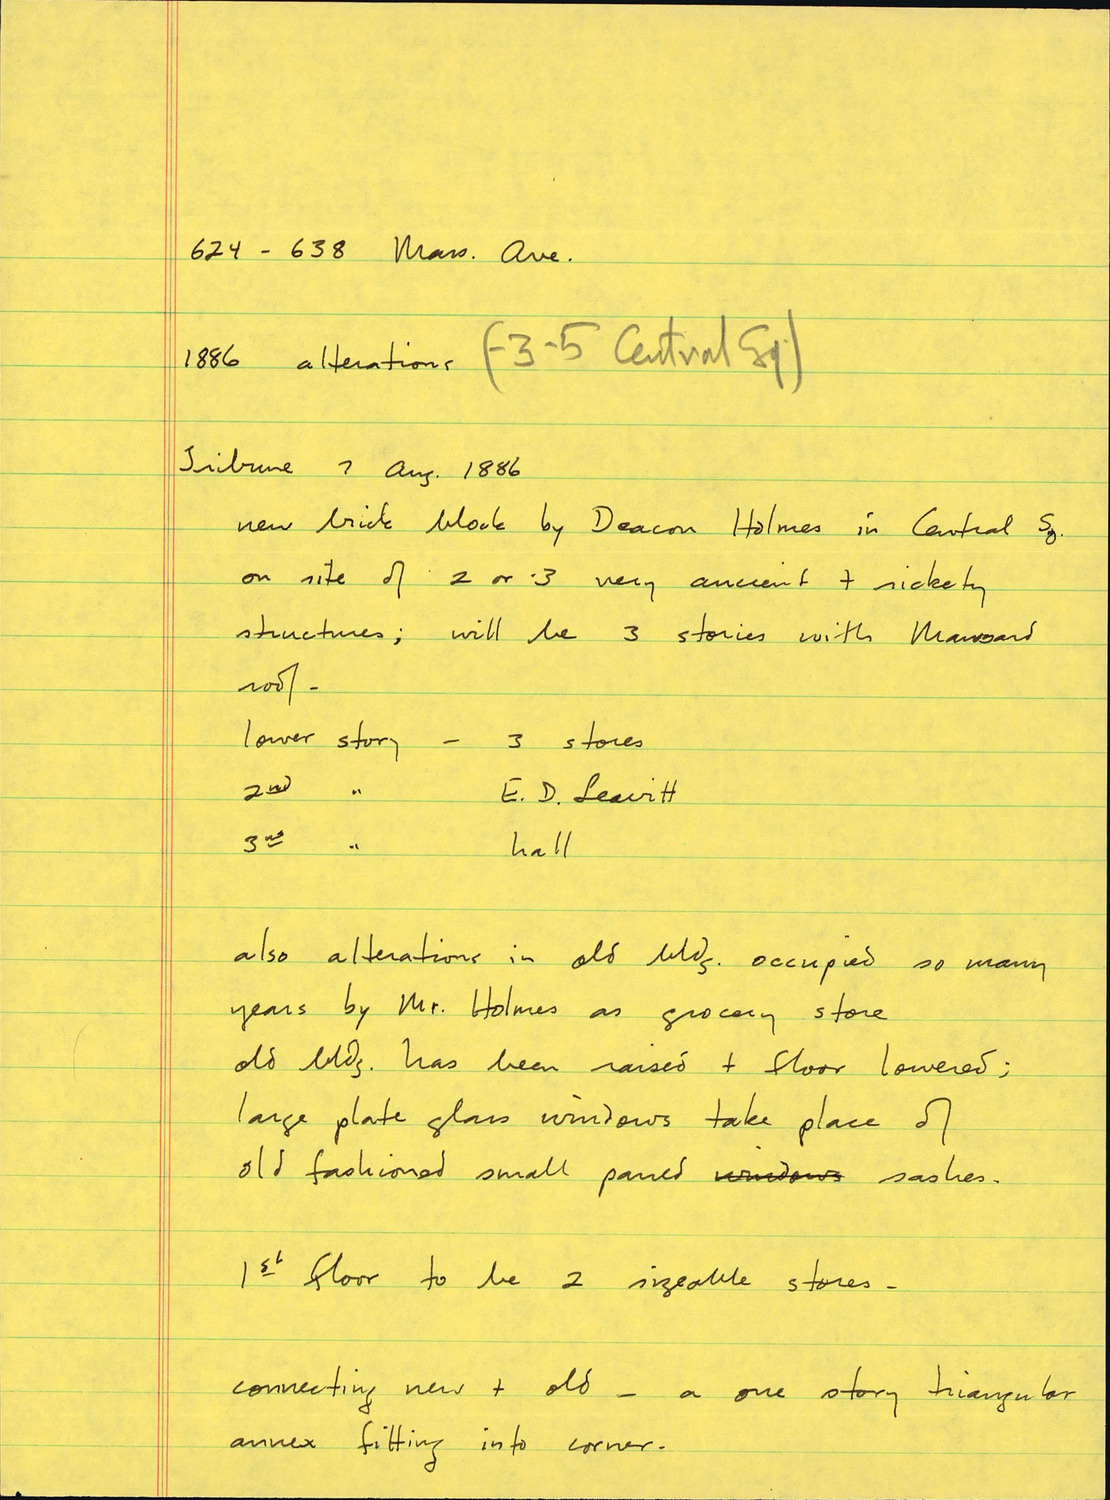 624 - 638 Mass. Ave.
1886 alterations (-3-5 Central Sq.)
Tribune 7 Aug. 1886
new brick block by Deacon Holmes in Central Sq.
on site of 2 or 3 very ancient + rickety
structures; will be 3 stories with Mansard
roof -
lower story - 3 stores
2nd " E. D. Leavitt
3rd " hall
also alterations in old bldg. occupied so many
years by Mr. Holmes as grocery store
old bldg. has been raised + floor lowered;
large plate glass windows take place of
old fashioned small paned windows sashes.
1st floor to be 2 sizeable stores -
connecting new + old - a one story triangular
annex fitting into corner.